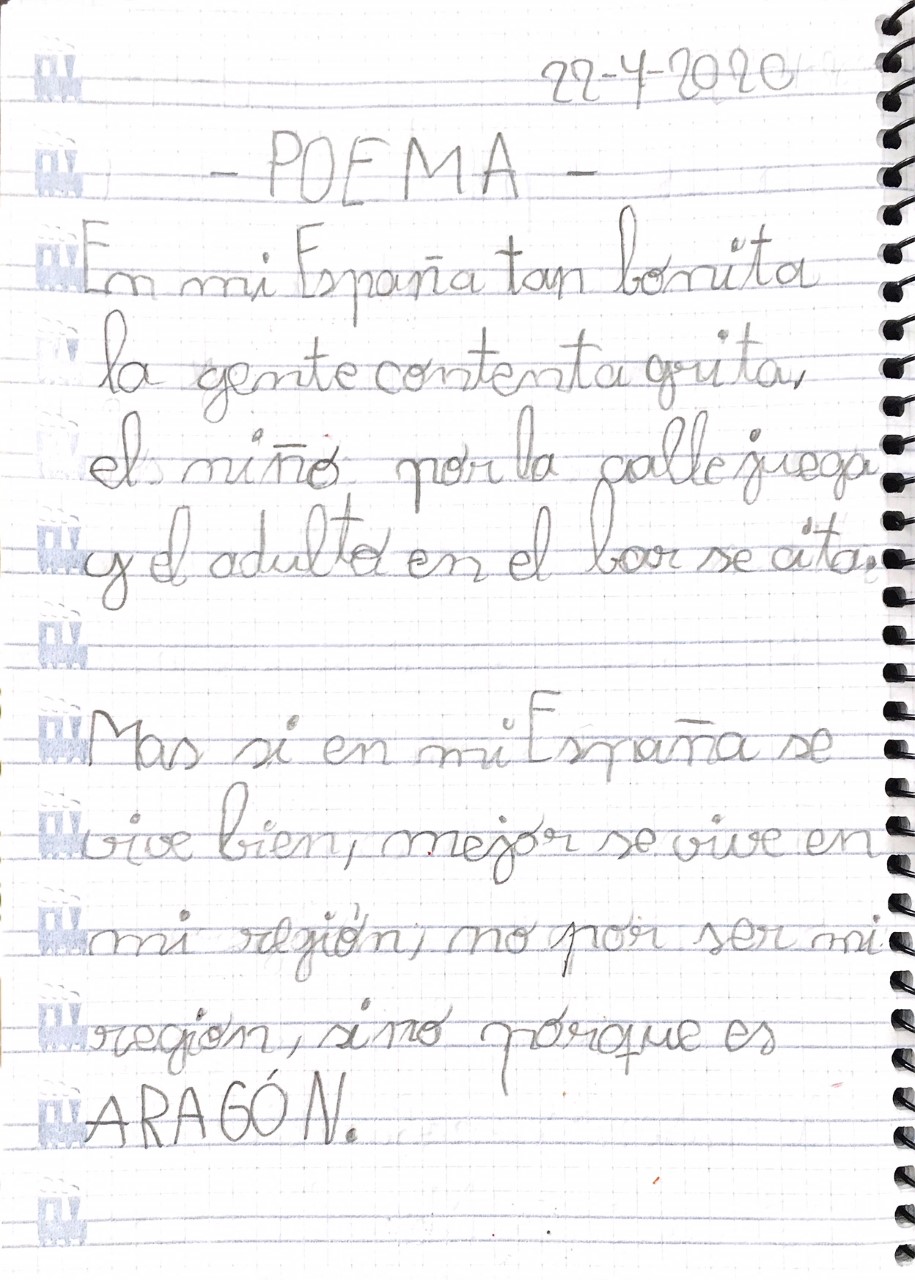 22-4-2020
- POEMA -
En mi España tan bonita
la gente contenta grita,
el niño por la calle juega
y el adulto en el bar se cita.
Mas si en mi España se
vive bien, mejor se vive en
mi región, no por ser mi
region, sino porque es
ARAGÓN.